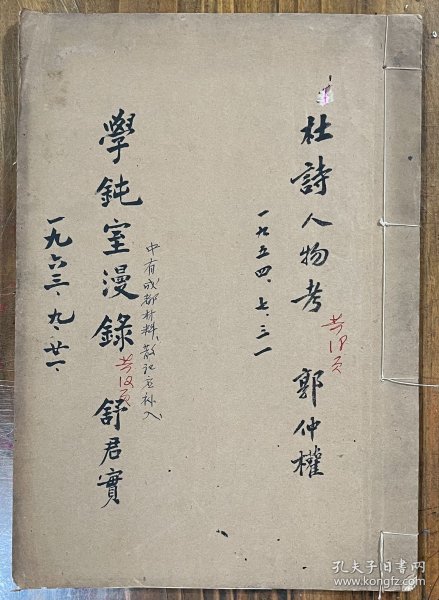 杜詩人物考 郭仲權
一九五四、七、三一
學鈍室漫錄 舒君實
中有成都材料、散記應補入
一九六三、九、廿一、
孔夫子旧书网
www.kongfz.com